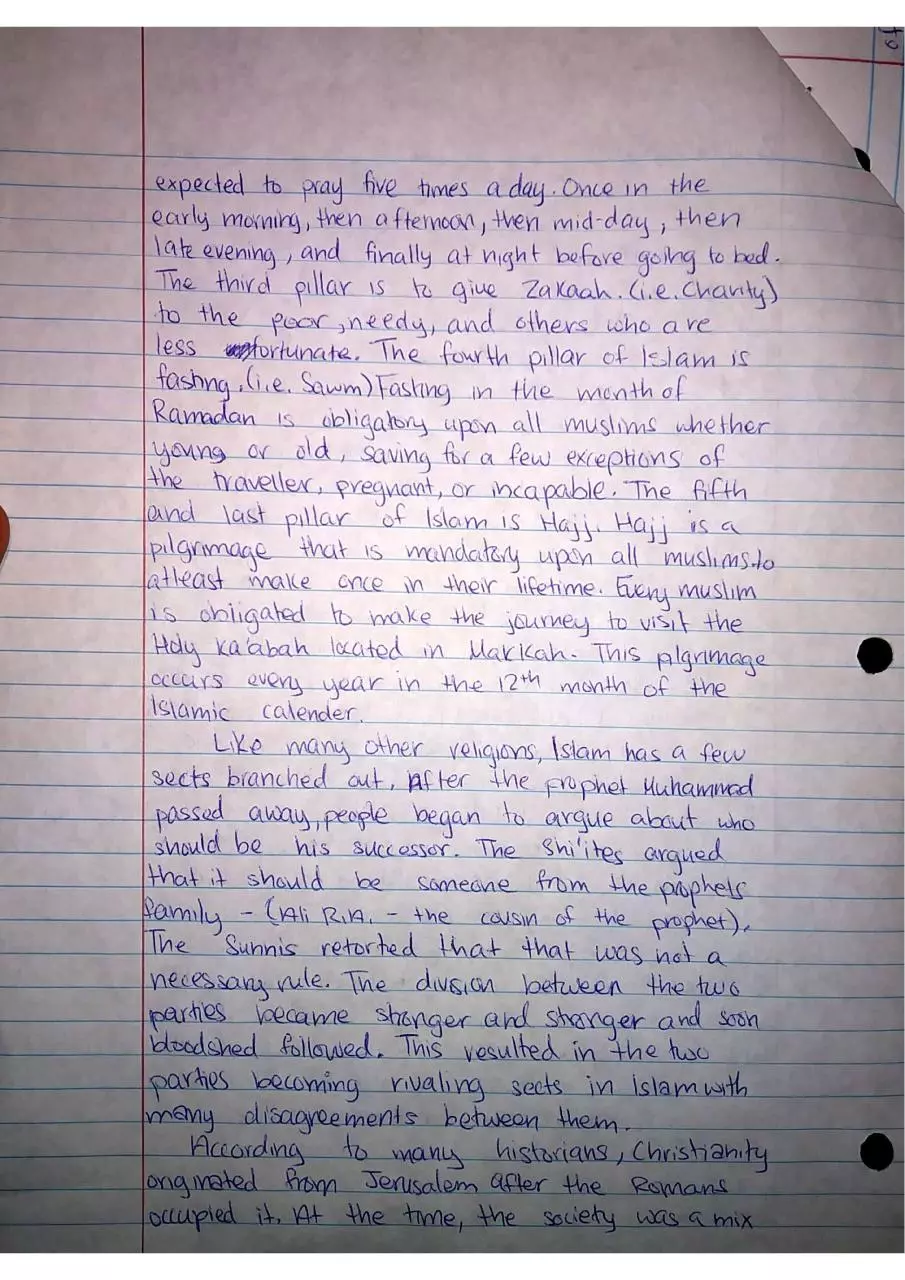 expected to pray five times a day. Once in the
early morning, then afternoon, then mid-day, then
late evening, and finally at night before going to bed.
The third pillar is to give Zakaah. (i.e. Charity)
to the poor, needy, and others who are
less fortunate. The fourth pillar of Islam is
fasting. (i.e. Sawm) Fasting in the month of
Ramadan is obligatory upon all muslims whether
young or old, saving for a few exceptions of
the traveller, pregnant, or incapable. The fifth
and last pillar of Islam is Hajj. Hajj is a
pilgrimage that is mandatory upon all muslims to
atleast make once in their lifetime. Every muslim
is obligated to make the journey to visit the
Holy ka'abah located in Makkah. This pilgrimage
occurs every year in the 12th month of the
Islamic calender.
Like many other religions, Islam has a few
sects branched out. After the prophet Muhammad
passed away, people began to argue about who
should be his successor. The Shi'ites argued
that it should be someone from the prophets
family - (Ali R.A. - the cousin of the prophet).
The Sunnis retorted that that was not a
necessary rule. The division between the two
parties became stronger and stronger and soon
bloodshed followed. This resulted in the two
parties becoming rivaling sects in islam with
many disagreements between them.
According to many historians, Christianity
originated from Jerusalem after the Romans
occupied it. At the time, the society was a mix